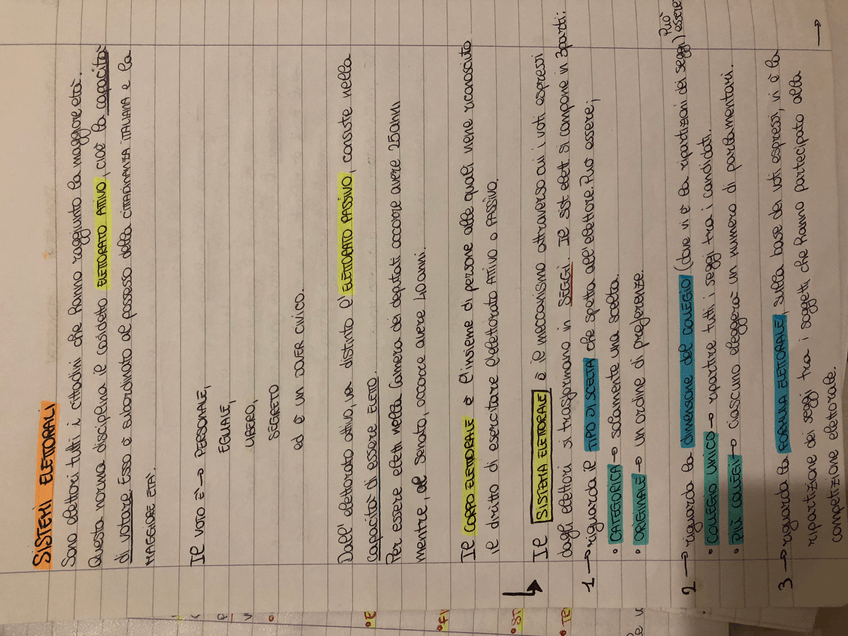 SISTEMI ELETTORALI
Sono elettori tutti i cittadini che hanno raggiunto la maggiore età.
Questa norma disciplina il cosidetto ELETTORATO ATTIVO, cioè la capacità
di votare. Esso è subordinato al possesso della CITTADINANZA ITALIANA e la
MAGGIORE ETA'.
Il VOTO E' → PERSONALE,
EGUALE,
LIBERO,
SEGRETO
ed è UN DOVER CIVICO.
Dall' elettorato attivo, va distinto l'ELETTORATO PASSIVO, consiste nella
capacità di essere ELETTO.
Per essere eletti nella Camera dei deputati occorre avere 25anni
mentre, al Senato, occorre avere 40anni.
Il CORPO ELETTORALE è l'insieme di persone alle quali viene riconosciuto
il diritto di esercitare l'elettorato ATTIVO o PASSIVO.
Il SISTEMA ELETTORALE è il meccanismo attraverso cui i voti espressi
dagli elettori si trasformano in SEGGI. Il sist elett si compone in 3parti:
1 → riguarda il TIPO DI SCELTA che spetta all'elettore. Può essere;
• CATEGORICA → solamente una scelta.
• ORDINALE → un ordine di preferenze.
2 → riguarda la dimensione del COLLEGIO (dove vi è la ripartizioni dei seggi) Può essere
• COLLEGIO UNICO → ripartire tutti i seggi tra i candidati.
• PIÙ COLLEGI → ciascuno eleggerà un numero di parlamentari.
3 → riguarda la FORMULA ELETTORALE, sulla base dei voti espressi, vi è la
ripartizione dei seggi tra i soggetti che hanno partecipato alla
competizione elettorale.
→